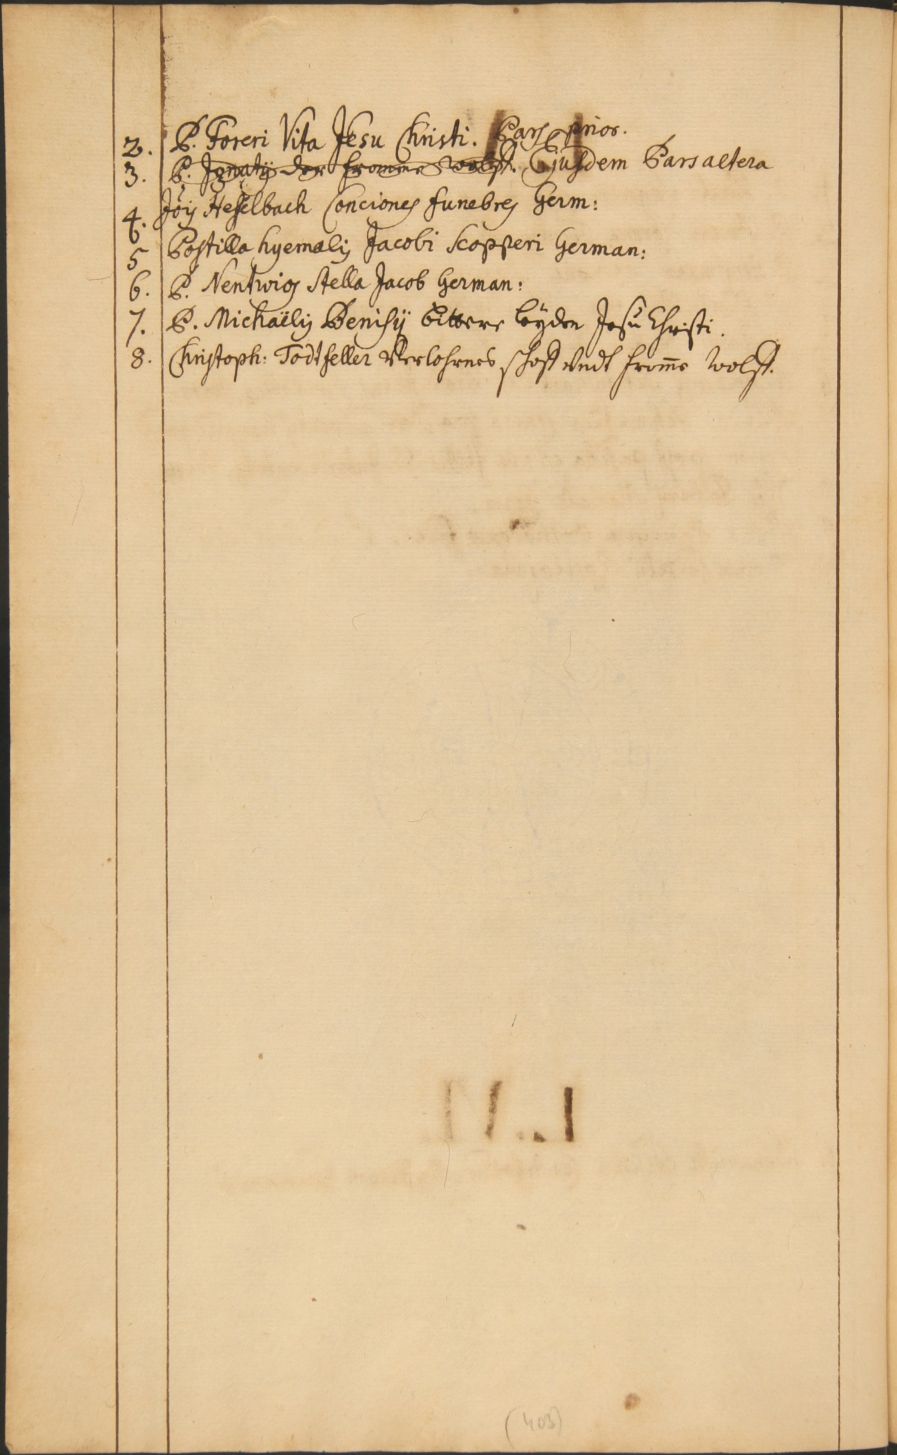 2. P. Foreri Vita Jesu Christi. Pars prior.
3. P. Ignatij der fromme Wolff. Ejusdem Pars altera
4. Jois Heselbach Conciones funebres Germ:
5 Postilla hyemalis Jacobi Scopperi German:
6. P. Nentwig Stella Jacob German:
7. P. Michaëlis Denisij bittere leÿden Jesu Christi.
8. Christoph: Todtfeller Verlohrnes schoff undt fromme Wolff.
(403)